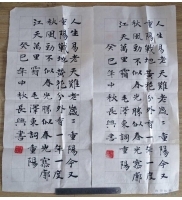 人生易老天難老歲歲重陽今又
重陽戰地黃花分外香一年一度
秋風勁不似春光勝似春光寥廓
江天萬里霜 毛澤東詞重陽
癸巳年中秋長興書
人生易老天難老歲歲重陽今又
重陽戰地黃花分外香一年一度
秋風勁不似春光勝似春光寥廓
江天萬里霜 毛澤東詞重陽
癸巳年中秋長興書